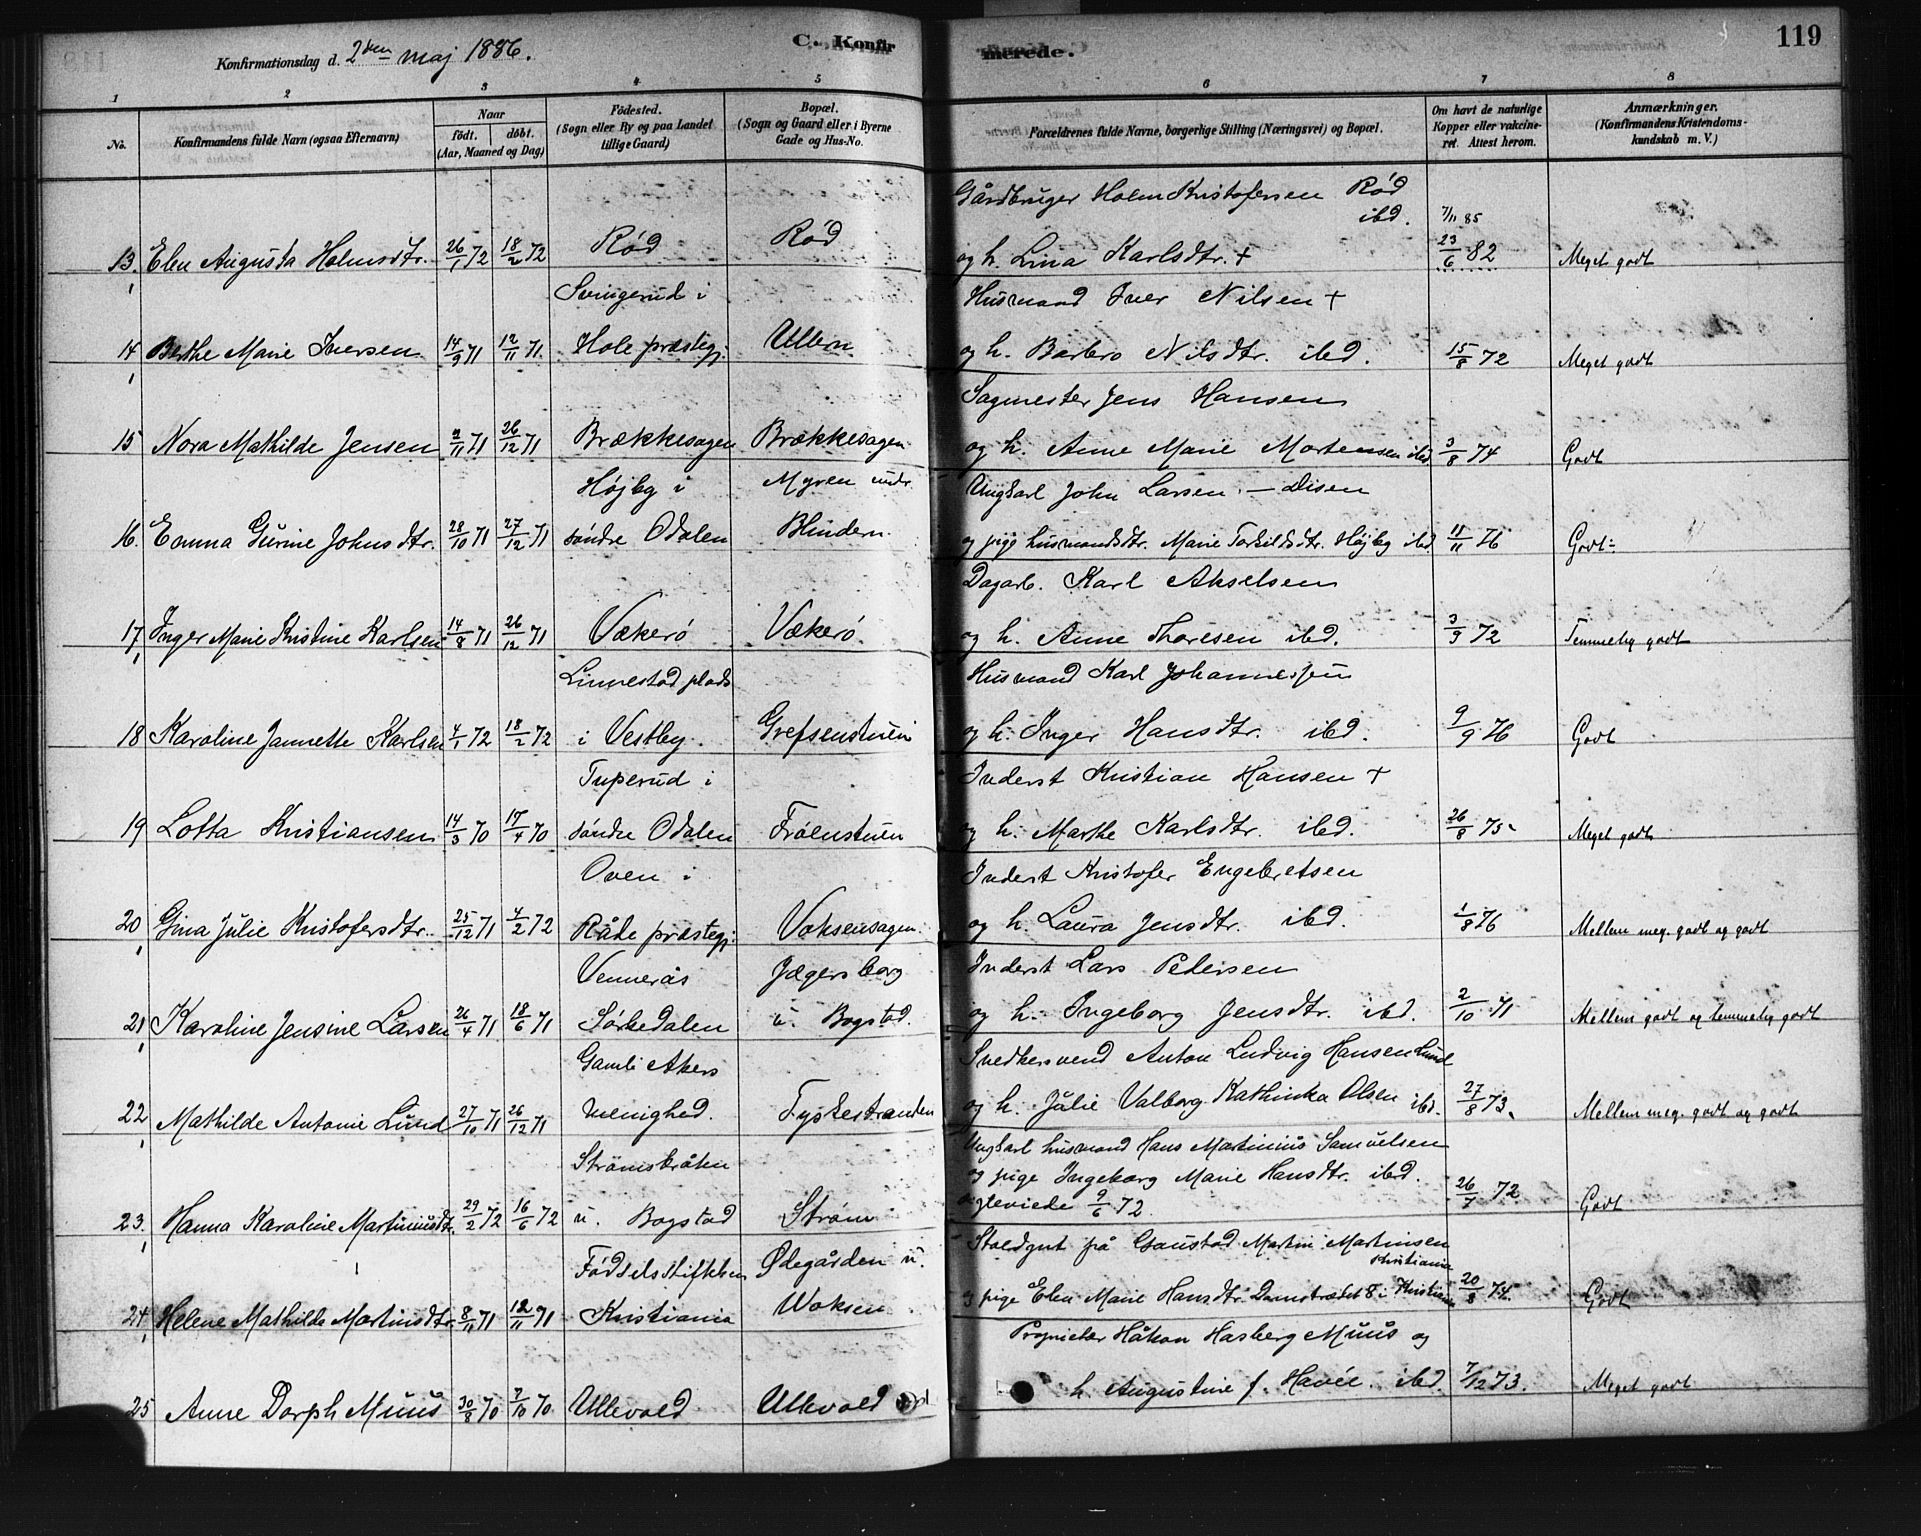 119
Konfirmationsdag d. 2den maj 1886.
C. Konfirmerede.
1 2 3 4 5 6 7 8
No.
Konfirmandens fulde Navn (ogsaa Efternavn)
Naar
födt. döbt.
(Aar, Maaned og Dag)
Födested.
(Sogn eller By og paa Landet
tillige Gaard)
Bopæl.
(Sogn og Gaard eller i Byerne
Gade og Hus-No.
Forældrenes fulde Navne, borgerlige Stilling (Næringsvei) og Bopæl.
Om havt de naturlige
Kopper eller vaccine-
ret. Attest herom.
Anmærkninger.
(Konfirmandens Kristendoms-
kundskab m. V.)
Gårdbruger Holm Kristofersen Rød
ibd. 7/11 85
13. Elen Augusta Holmsdtr. 26/1 72 18/2 72 Rød Rød og h. Lina Karlsdtr. + 23/6 82 Meget godt
Svingerud i Husmand Iver Nilsen +
14 Berthe Marie Iversen 14/9 71 12/11 71. Hole præstegj. Ullern og h. Barbro Nilsdtr. ibd. 15/8 72 Meget godt
Sagmester Jens Hansen
15 Nora Mathilde Jensen 2/11 71 26/12 71 Brækkesagen Brækkesagen og h. Anne Marie Mortensen ibd 3/8 74 Godt
Højby i Myren undr. Ungkarl John Larsen. — Disen
16. Emma Gurine Johnsdtr. 28/10 71 27/12 71 søndre Odalen Blindern og pige husmandsdtr. Marie Torkildsdtr. Højby ibd 11/11 76 Godt÷
Dagarb. Karl Akselsen
17 Inger Marie Kristine Karlsen 14/8 71 26/12 71 Vækerø Vækerø og h. Anne Thoresen ibd. 3/9 72 Temmelig godt
Linnestad plads Husmand Karl Johannessen
18 Karoline Jannette Karlsen 4/1 72 18/2 72 i Vestby. Grefsenstuen og h. Inger Hansdtr. ibd. 9/9 76 Godt
Tuperud i Inderst Kristian Hansen +
19 Lotta Kristiansen 14/3 70 17/4 70 søndre Odalen Frøenstuen og h. Marthe Karlsdtr. ibd. 26/8 75. Meget godt
Oven i Inderst Kristofer Engebretsen
20 Gina Julie Kristofersdtr. 25/12 71 4/2 72 Råde præstegj. Voksensagen og h. Laura Jensdtr. ibd. 1/8 76 Mellem meg. godt og godt
Vennerås Jægersborg Inderst Lars Petersen
21 Karoline Jensine Larsen 26/4 71 18/6 71 Sørkedalen u. Bogstad. og h. Ingeborg Jensdtr. ibd. 2/10 71 Mellem godt og temmelig godt
Gamle Akers Snedkersvend Anton Ludvig Hansen Lund
22 Mathilde Antonie Lund 27/10 71 26/12 71 menighed. Tyskestranden og h. Julie Valborg Kathinka Olsen ibd. 27/8 73. Mellem meg. godt og godt
Strømsbråten Ungkarl husmand Hans Martinius Samuelsen
og pige Ingeborg Marie Hansdtr. ibd.
23. Hanna Karoline Martiniusdtr. 29/2 72 16/6 72 u. Bogstad Strøm ægteviede 9/6 72. 26/7 72 Godt
Fødselsstiftelsen Ødegården u. Staldgut på Gaustad Martin Martinsen
Kristiania
24 Helene Mathilde Martinsdtr. 8/11 71 12/11 71 Kristiania Woksen og pige Elen Marie Hansdtr. Damstrædet 8 i Kristiania 20/8 74 Godt
Proprietær Håkon Hasberg Muus og
25 Anne Dorph Muus 30/8 70 7/10 70 Ullevold Ullevold h. Augustine f. ibd. 7/12 73. Meget godt